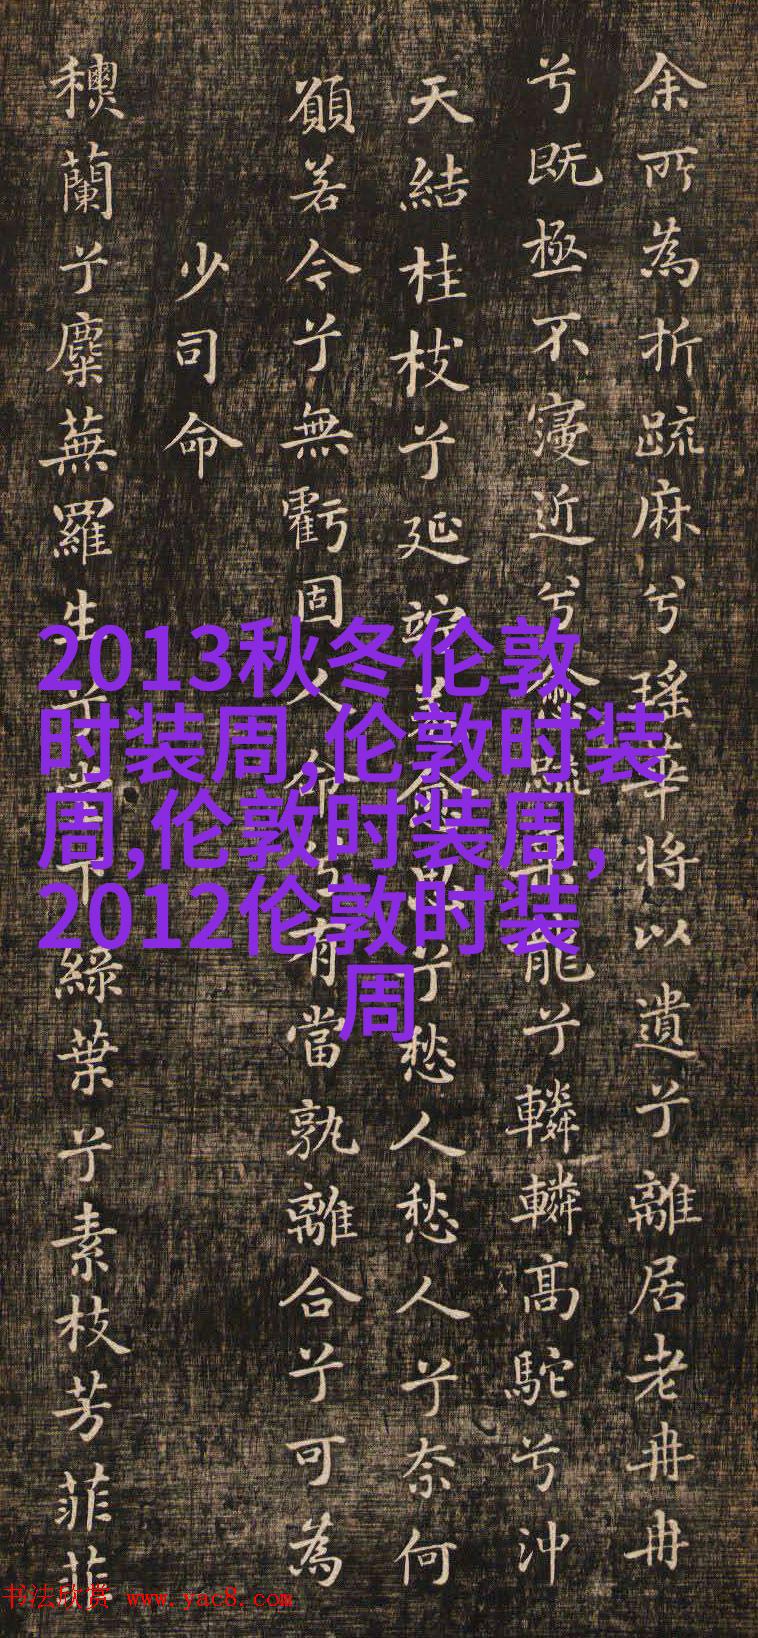 余所為折疏麻兮瑤華將以遺兮離居老冉冉
兮既極不寖近兮愈疏乘龍兮轔轔高駝兮沖
天結桂枝兮延竚羌愈思兮愁人愁人兮奈何
願若今兮無虧固人命兮有當孰離合兮可為
少司命
蘭兮麋蕪羅生兮堂下綠葉兮素枝芳菲菲
2013秋冬伦敦
时装周,伦敦时装
周,伦敦时装周,
2012伦敦时装
周
书法欣赏 www.yac8.com